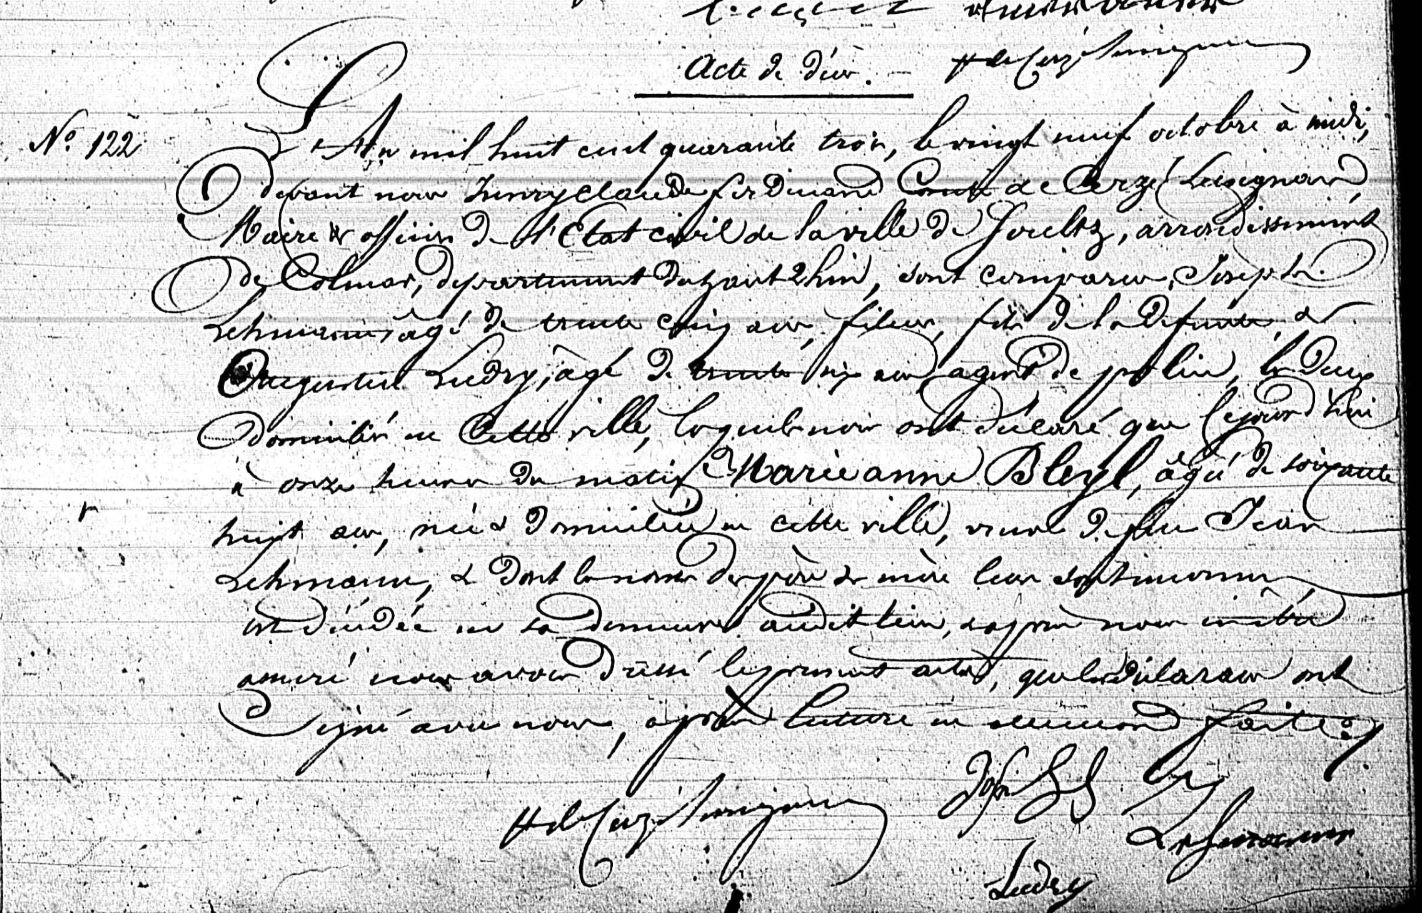 Acte de décès.
N° 122
L'An mil huit cent quarante trois, le vingt neuf octobre à midi,
devant nous henry claude ferdinand Comte de Cerzé Lusignan
Maire & officier de l'Etat civil de la ville de Soultz, arrondissement
de Colmar, département du haut Rhin, sont comparus, Joseph
Lehmann, âgé de trente cinq ans, fileur, fils de la défunte, &
Augustin Ludry, âgé de trente six ans agent de police, les deux
domiciliés en cette ville, lesquels nous ont déclaré que cejourd'hui
à onze heures du matin Marieanne Bleyl, âgée de soixante
huit ans, née & domiciliée en cette ville, veuve de feu Jean
Lehmann, & dont les noms des père & mère leur sont inconnus
est décédée en sa demeure audit lieu, & après nous
assuré nous avons dressé le présent acte, que les déclarans ont
signé avec nous, après lecture en faite.
Lehmann
Ludry